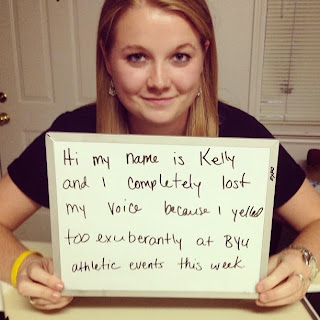 Hi my name is Kelly
and I completely lost
my voice because I yelled
too exuberantly at BYU
athletic events this week